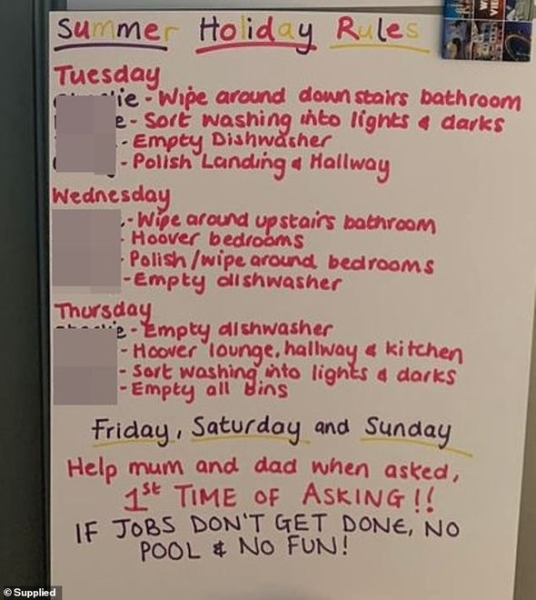 Summer Holiday Rules
Tuesday
ie - Wipe around downstairs bathroom
e - Sort washing into lights & darks
- Empty Dishwasher
- Polish Landing & Hallway
Wednesday
- Wipe around upstairs bathroom
Hoover bedrooms
Polish/wipe around bedrooms
- Empty dishwasher
Thursday
e - Empty dishwasher
- Hoover lounge, hallway & kitchen
- Sort washing into lights & darks
- Empty all Bins
Friday, Saturday and Sunday
Help mum and dad when asked,
1st TIME OF ASKING!!
IF JOBS DON'T GET DONE, NO
POOL & NO FUN!
© Supplied